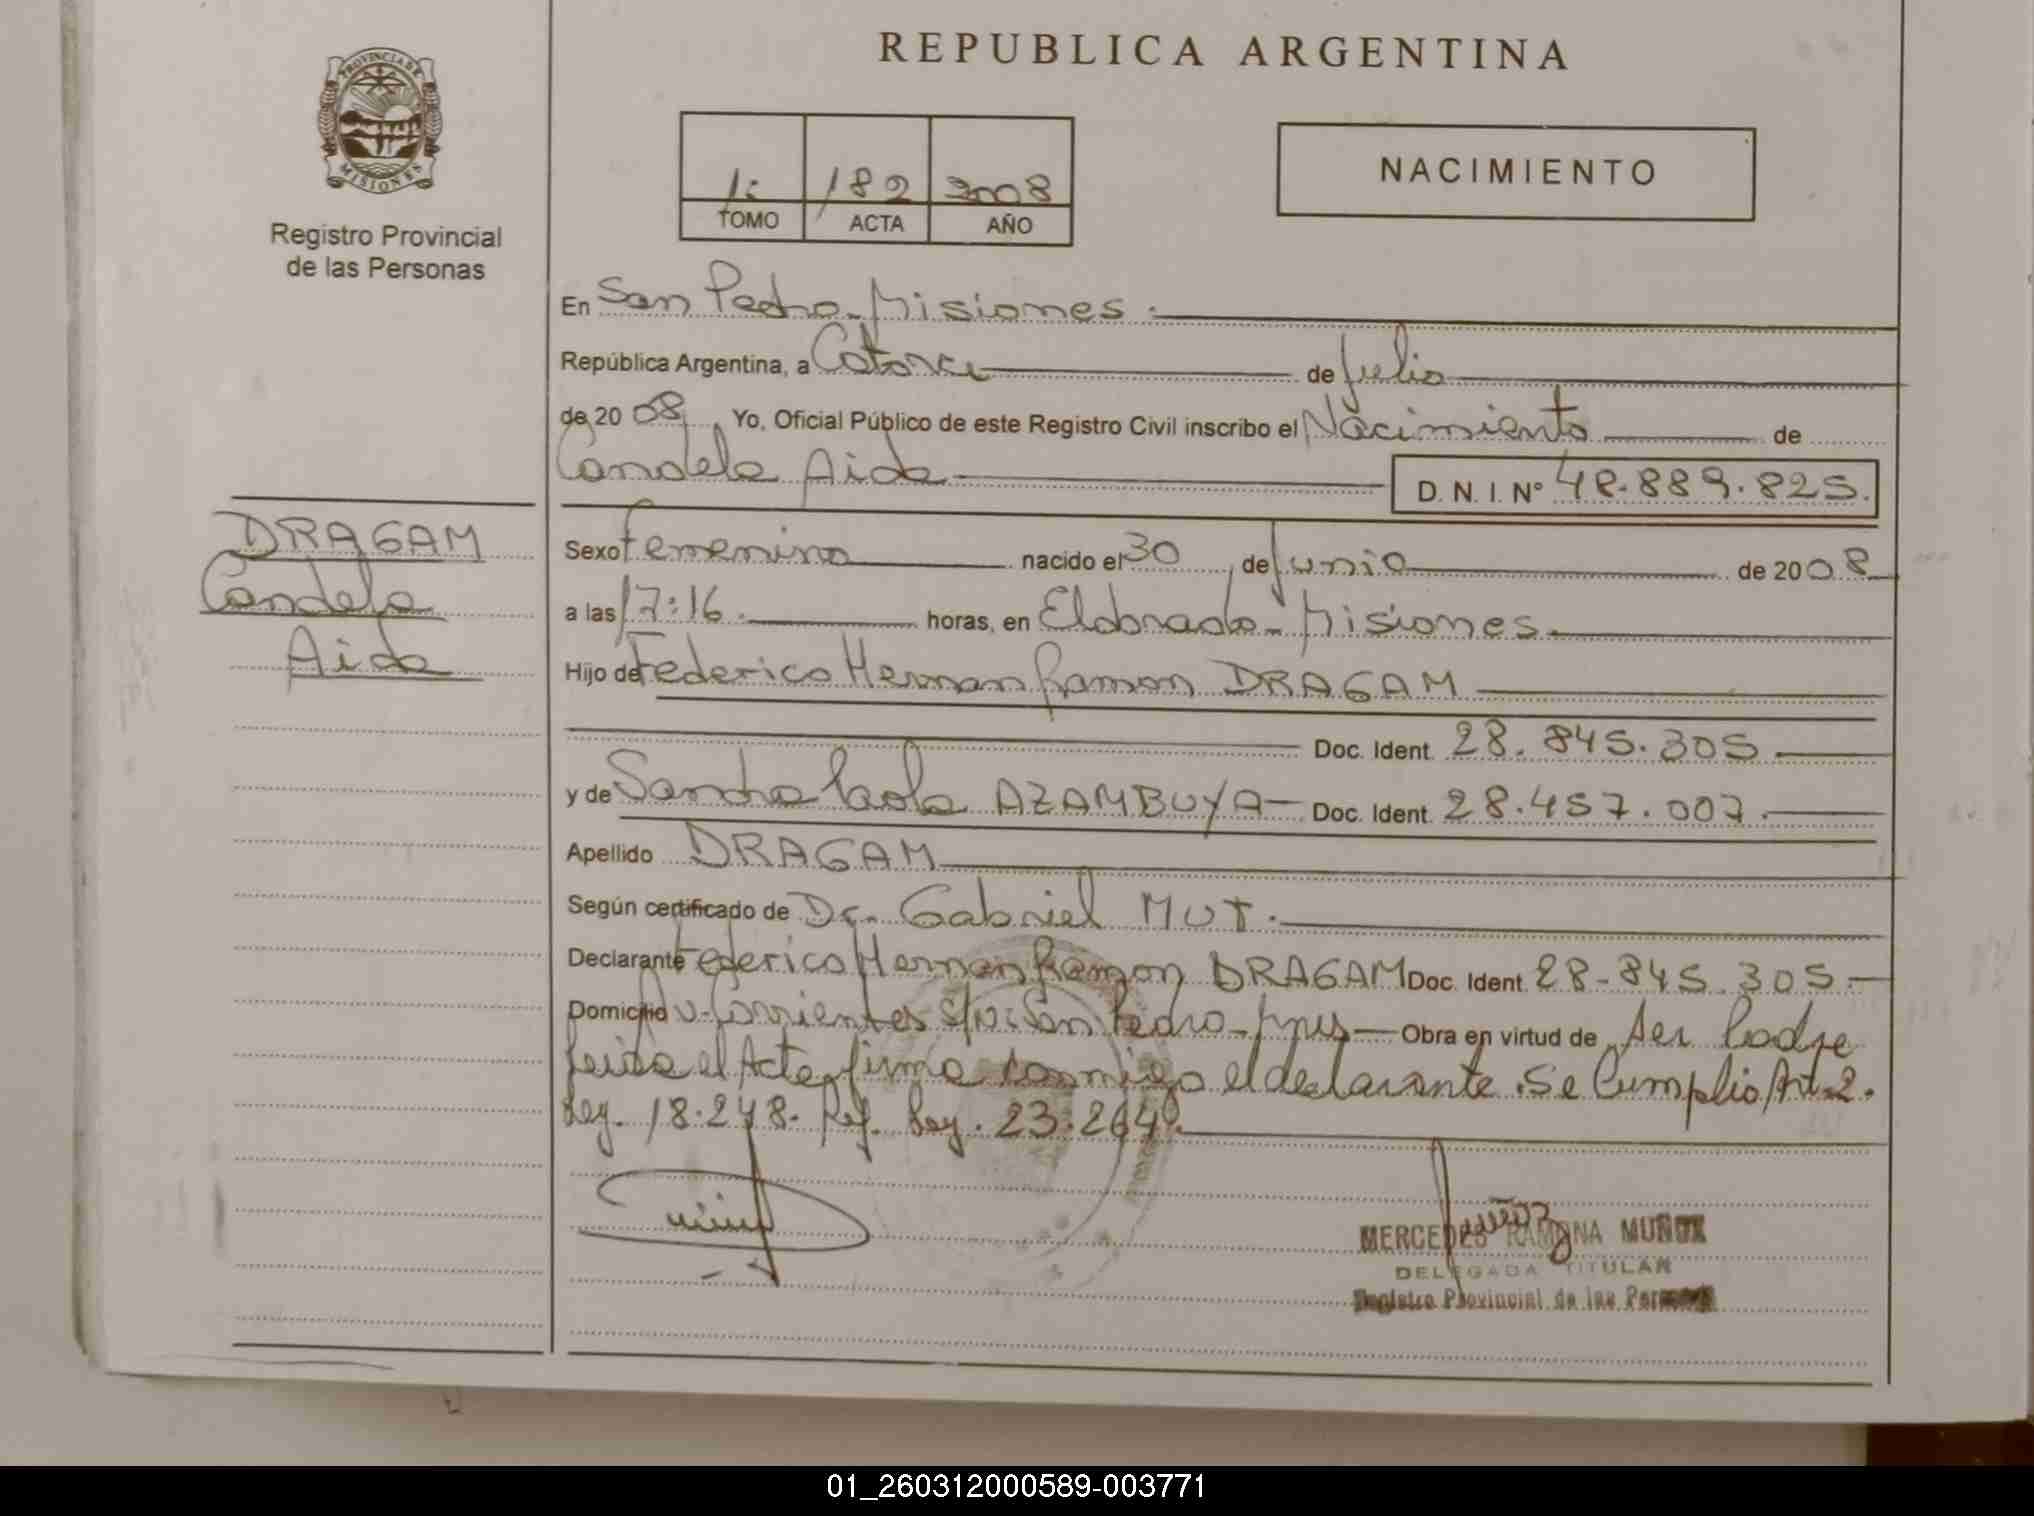 REPUBLICA ARGENTINA
PROVINCIA DE
MISIONES
Registro Provincial
de las Personas
1: 182 2008
TOMO ACTA AÑO
NACIMIENTO
En San Pedro - Misiones .
República Argentina, a Catorce de julio
de 20 08 Yo, Oficial Público de este Registro Civil inscribo el Nacimiento de
Candela Aida D. N. I. Nº 48.889.825.
DRAGAM
Candela
Aida
Sexo Femenino nacido el 30 de Junio de 20 08
a las 17:16. horas, en Eldorado - Misiones.
Hijo de Federico Hernan Ramon DRAGAM
Doc. Ident. 28.845.305.
y de Sandra Paola AZAMBUYA Doc. Ident. 28.457.007.
Apellido DRAGAM
Según certificado de Dr. Gabriel MUT.
Declarante Federico Hernan Ramon DRAGAM Doc. Ident. 28-845.305.
Domicilio Av. Corrientes S/Nº: San Pedro - Mnes Obra en virtud de Ser Padre
Leida el Acta, firma conmigo el declarante. Se Cumplio Art. 2.
Ley. 18.248. Ref. Ley. 23.264.
MERCEDES RAMONA MUÑOZ
DELEGADA TITULAR
Registro Provincial de las Personas
01_260312000589-003771